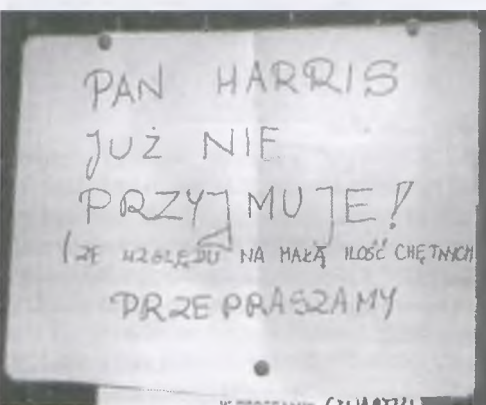 PAN HARRIS
JUŻ NIE
PRZYJMUJE!
(ZE WZGLĘDU NA MAŁĄ ILOŚĆ CHĘTNYCH
PRZEPRASZAMY
CZWARTKI